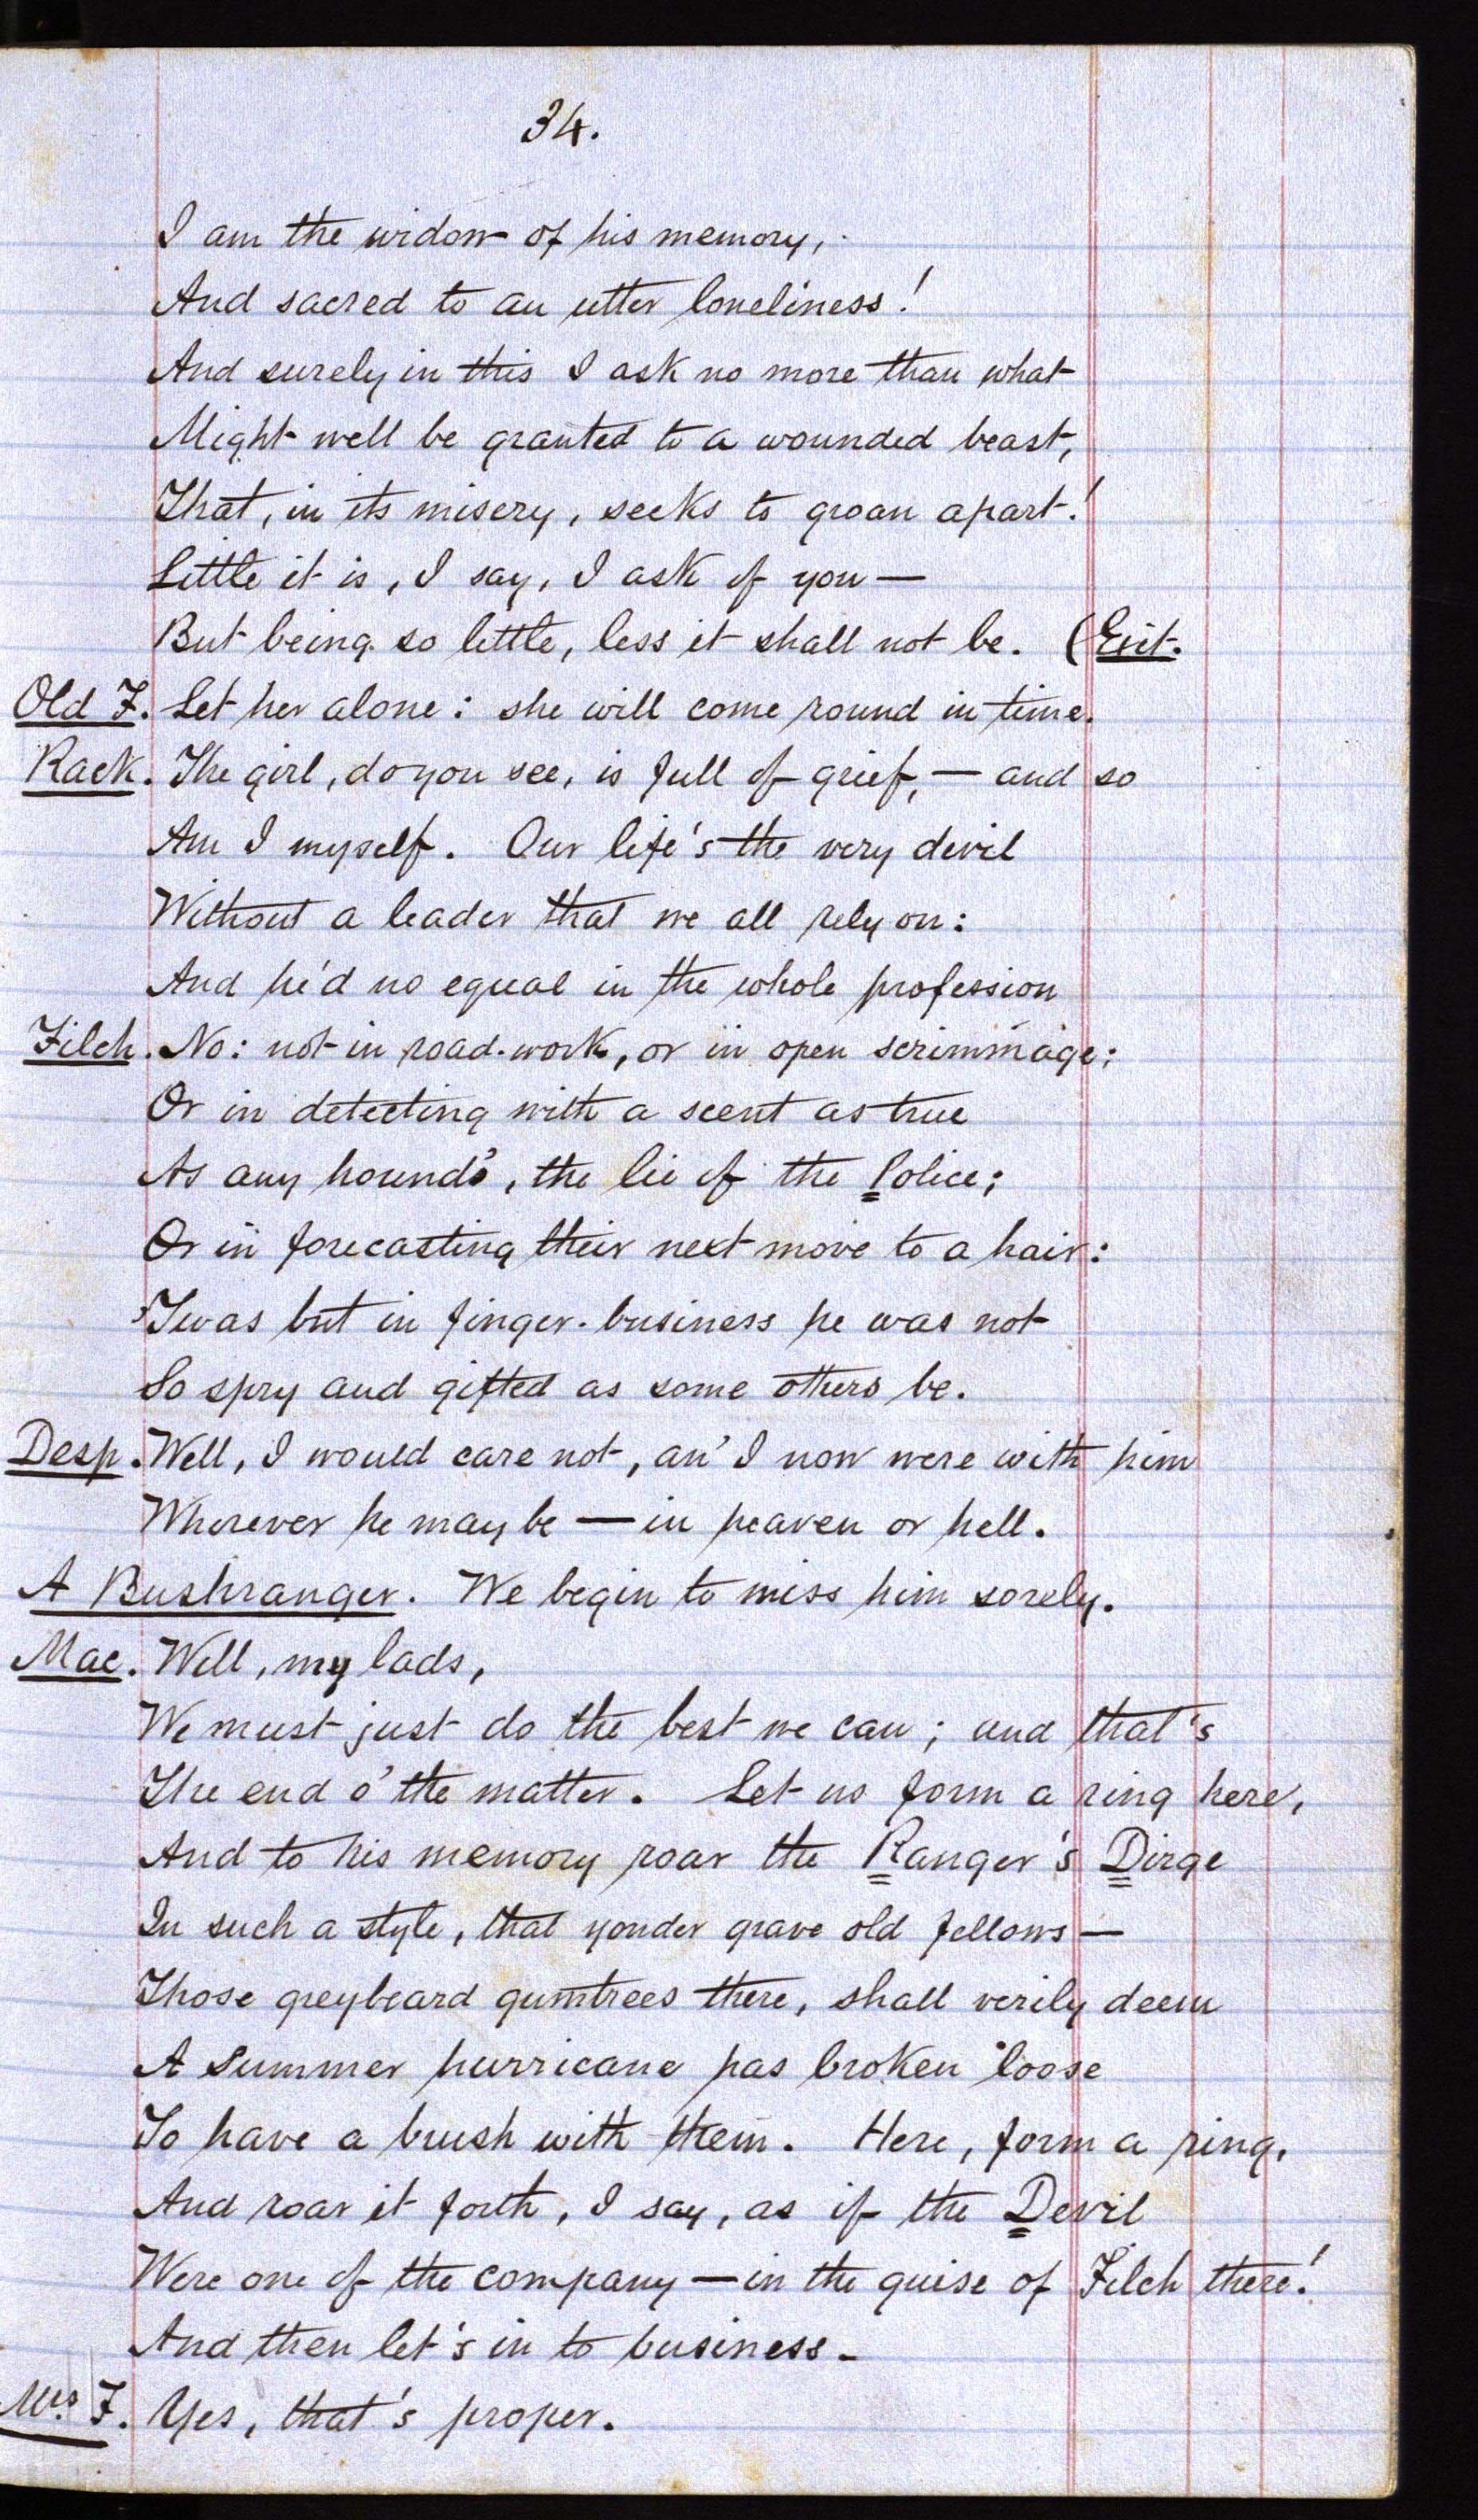 34.
I am the widow of his memory,
And sacred to an utter loneliness!
And surely in this I ask no more than what
Might well be granted to a wounded beast,
That, in its misery, seeks to groan apart!
Little it is, I say, I ask of you —
But being so little, less it shall not be. (Exit.
Old F. Let her alone: she will come round in time.
Rack. The girl, do you see, is full of grief, — and so
Am I myself. Our life's the very devil
Without a leader that we all rely on:
And he'd no equal in the whole profession
Filch. No: not in road-work, or in open scrimmage:
Or in detecting with a scent as true
As any hound's, the lie of the Police;
Or in forecasting their next move to a hair:
'Twas but in finger-business he was not
So spry and gifted as some others be.
Desp. Well, I would care not, an' I now were with him
Wherever he may be — in heaven or hell.
A Bushranger. We begin to miss him sorely.
Mac. Well, my lads,
We must just do the best we can; and that's
The end o' the matter. Let us form a ring here,
And to his memory roar the Ranger's Dirge
In such a style, that yonder grave old fellows —
Those greybeard gumtrees there, shall verily deem
A Summer hurricane has broken loose
To have a brush with them. Here, form a ring,
And roar it forth, I say, as if the Devil
Were one of the company — in the guise of Filch there!
And then let's in to business.
Mrs. F. Yes, that's proper.